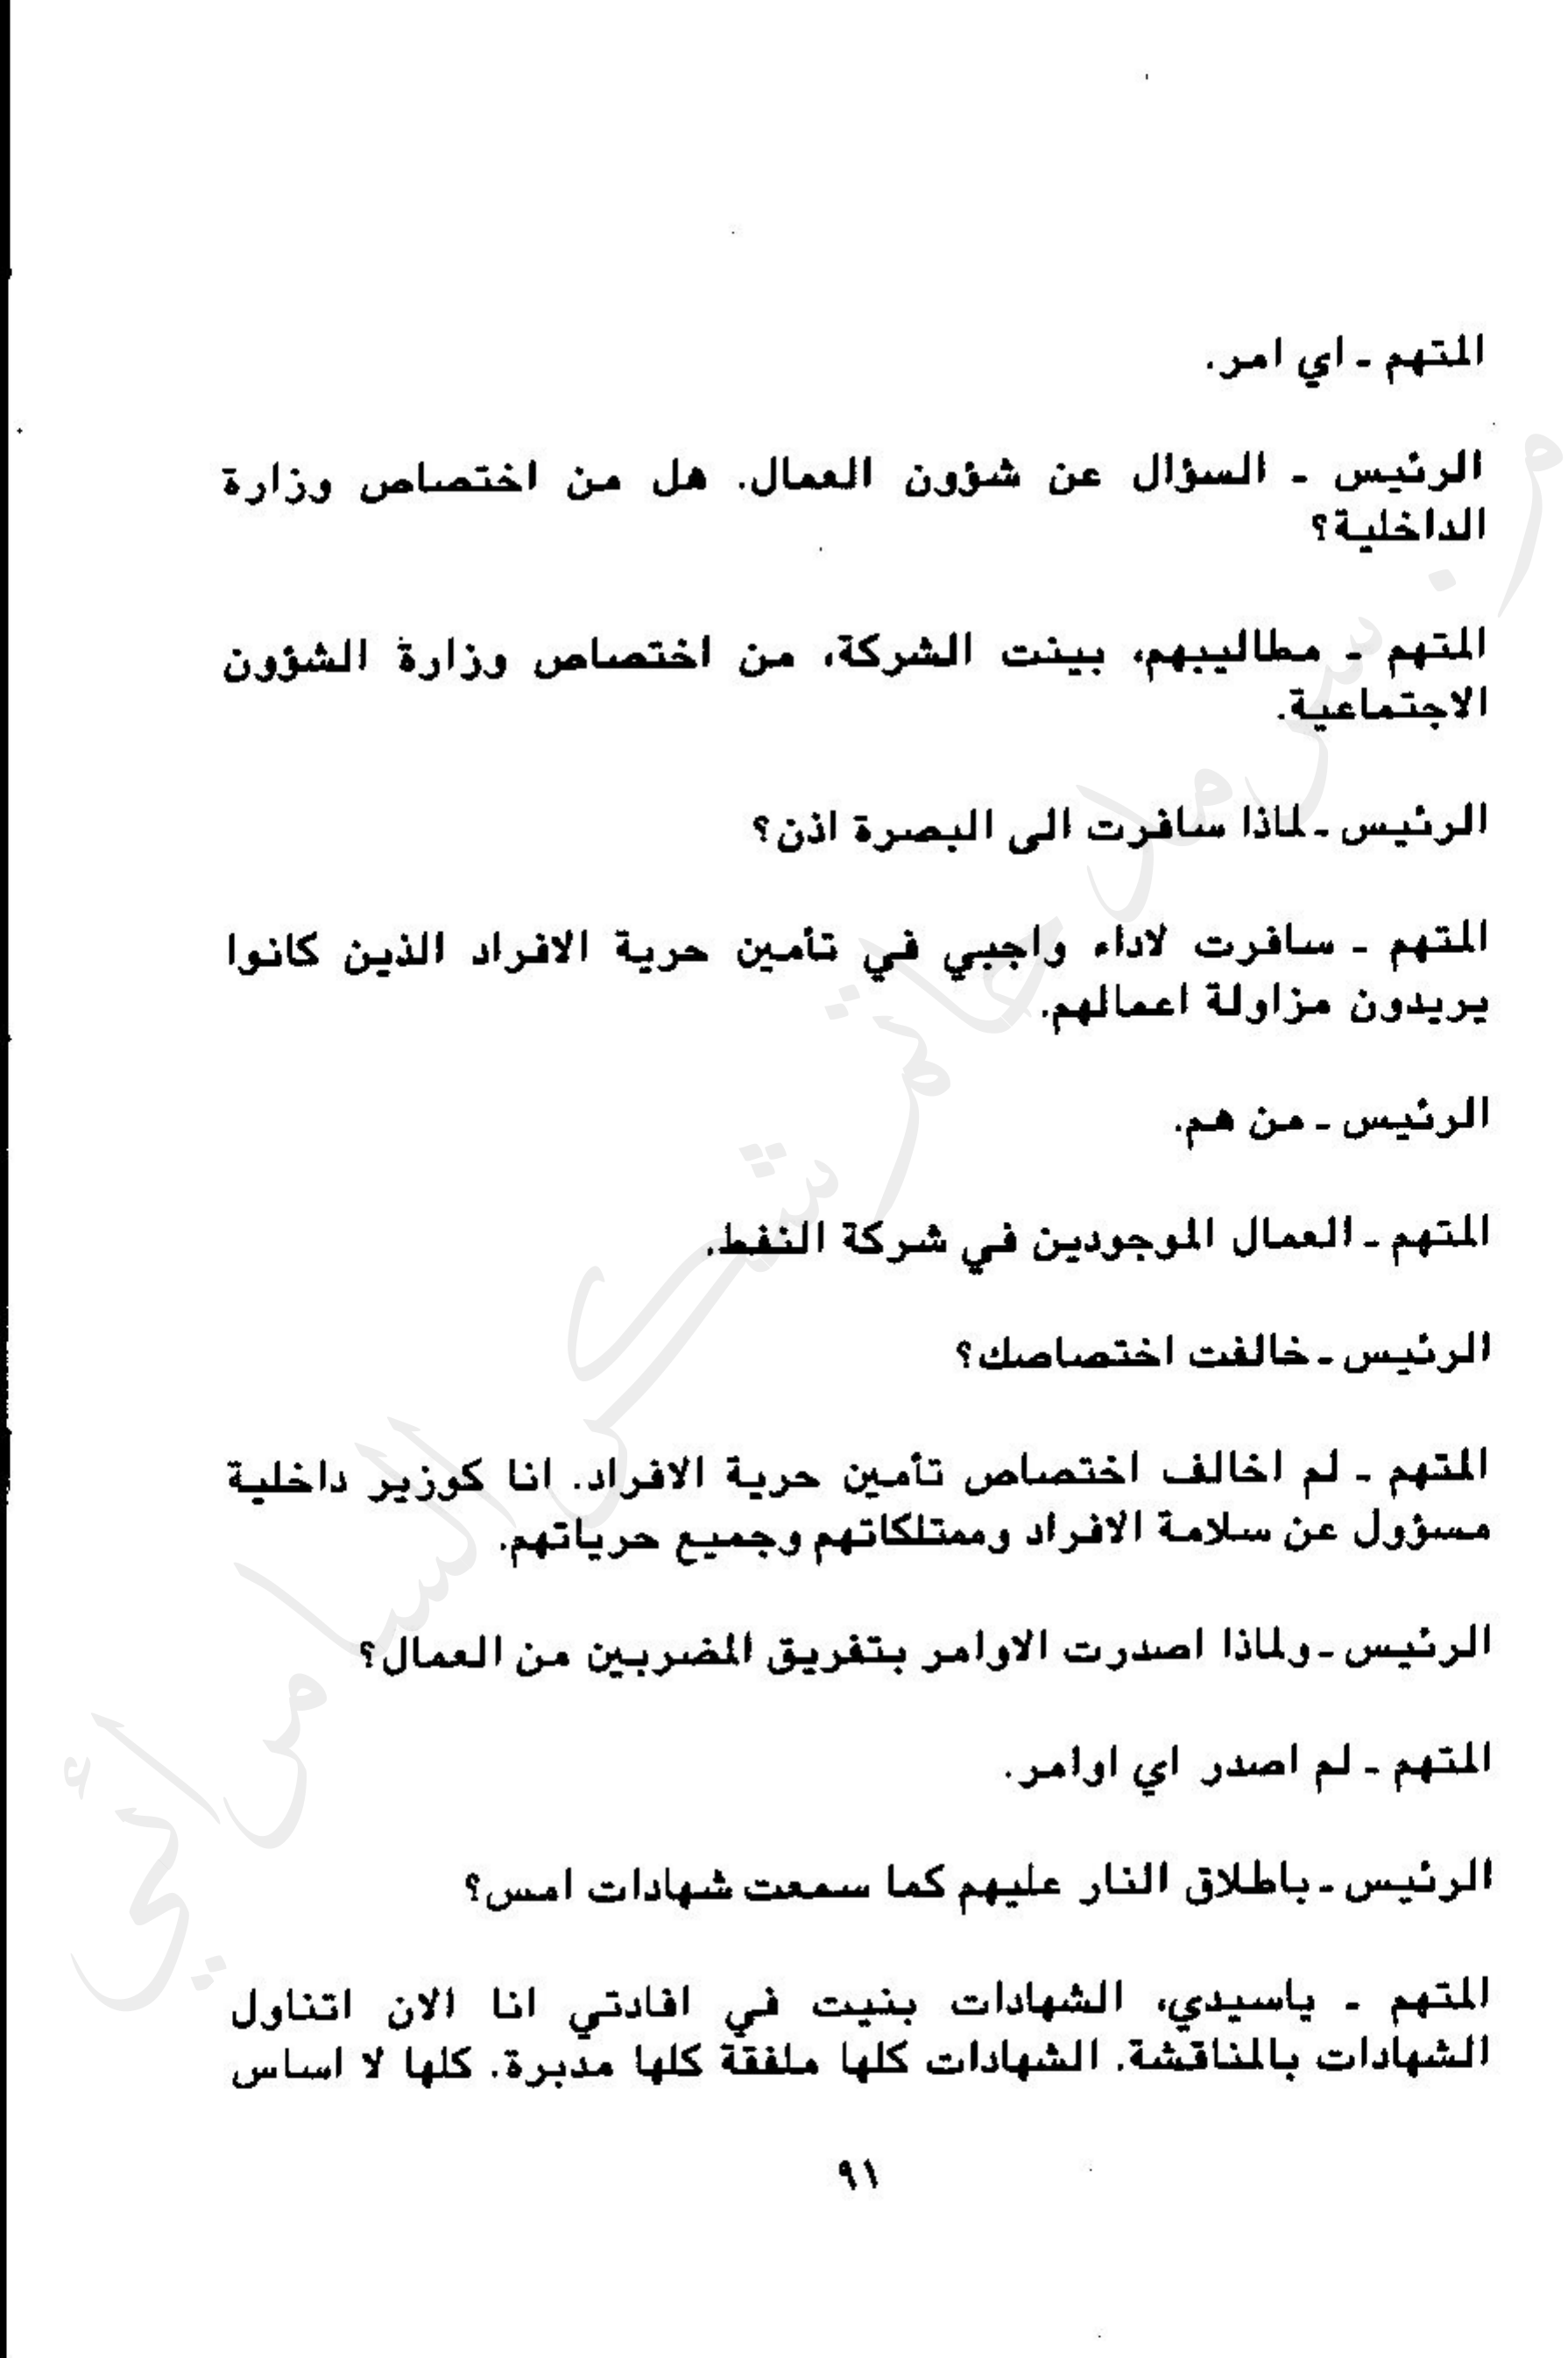 المتهم ـ اي امر.
الرئيس ـ السؤال عن شؤون العمال. هل من اختصاص وزارة
الداخلية؟
المتهم ـ مطاليبهم، بينت الشركة، من اختصاص وزارة الشؤون
الاجتماعية.
الرئيس ـ لماذا سافرت الى البصرة اذن؟
المتهم ـ سافرت لاداء واجبي في تأمين حرية الافراد الذين كانوا
يريدون مزاولة اعمالهم.
الرئيس ـ من هم.
المتهم ـ العمال الموجودين في شركة النفط.
الرئيس ـ خالفت اختصاصك؟
المتهم ـ لم اخالف اختصاص تأمين حرية الافراد. انا كوزير داخلية
مسؤول عن سلامة الافراد وممتلكاتهم وجميع حرياتهم.
الرئيس ـ ولماذا اصدرت الاوامر بتفريق المضربين من العمال؟
المتهم ـ لم اصدر اي اوامر.
الرئيس ـ باطلاق النار عليهم كما سمعت شهادات امس؟
المتهم ـ ياسيدي، الشهادات بنيت في افادتي انا الان اتناول
الشهادات بالمناقشة. الشهادات كلها ملفقة كلها مدبرة. كلها لا اساس
٩١
سرمد حاتم شكر السامرائي